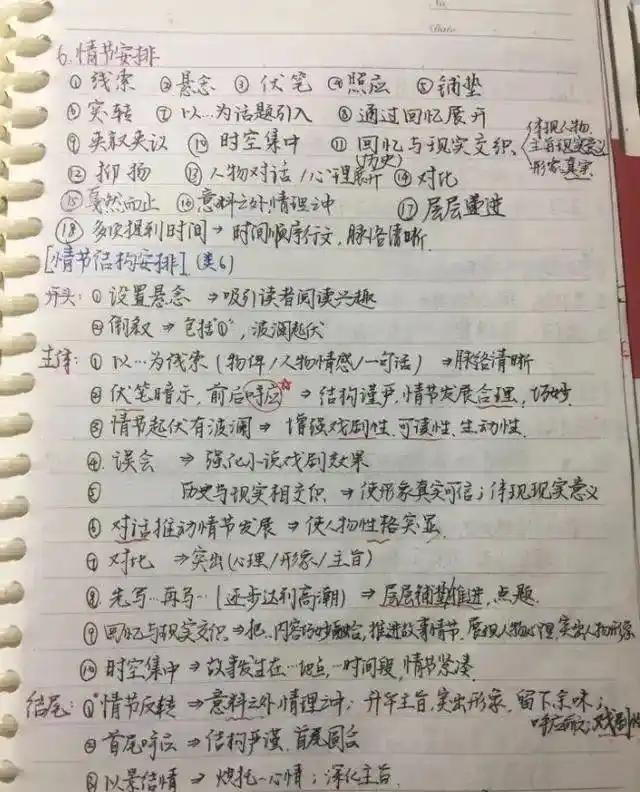 No.
Date
6.情节安排
①线索 ②悬念 ③伏笔 ④照应 ⑤铺垫
⑥突转 ⑦以…为话题引入 ⑧通过回忆展开
⑨夹叙夹议 ⑩时空集中 ⑪回忆与现实交织、(历史) 体现人物、主旨现实意义 形象真实
⑫抑扬 ⑬人物对话/心理展开 ⑭对比
⑮戛然而止 ⑯意料之外,情理之中 ⑰层层递进
⑱多次提到时间→时间顺序行文,脉络清晰.
[情节结构安排](类6)
开头:①设置悬念 ⇒吸引读者阅读兴趣
②倒叙 ⇒包括"①",波澜起伏
主体:①以…为线索(物件/人物情感/一句话) ⇒脉络清晰
②伏笔暗示,前后呼应☆ ⇒结构谨严,情节发展合理,巧妙.
③情节起伏有波澜 ⇒增强戏剧性、可读性、生动性.
④误会 ⇒强化小说戏剧效果
⑤ 历史与现实相交织 ⇒使形象真实可信;体现现实意义
⑥对话推动情节发展 ⇒使人物性格突显.
⑦对比 ⇒突出(心理/形象/主旨)
⑧先写…再写…(逐步达到高潮) ⇒层层铺垫推进,点题.
⑨回忆与现实交织⇒把…内容巧妙融合,推进故事情节,展现人物心理,突出人物形象
⑩时空集中 ⇒故事发生在…地点,一时间段,情节紧凑.
结尾:①情节反转 ⇒意料之外,情理之中;升华主旨,突出形象,留下余味;
呼应前文;戏剧性
②首尾呼应 ⇒结构严谨,首尾圆合
③以景结情 ⇒烘托…心情;深化主旨.